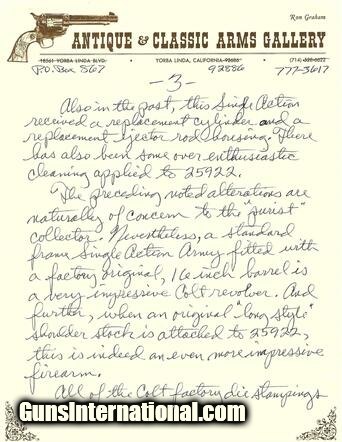 Ron Graham
ANTIQUE & CLASSIC ARMS GALLERY
18561 YORBA LINDA BLVD. YORBA LINDA, CALIFORNIA 92686 (714)
P.O. Box 867 92886 777-3617
-3-
Also in the past, this Single Action
received a replacement cylinder and a
replacement ejector rod housing. There
has also been some over enthusiastic
cleaning applied to 25922.
The preceding noted alterations are
naturally of concern to the "purist"
collector. Nevertheless, a standard
frame Single Action Army fitted with
a factory original, 16 inch barrel is
a very impressive Colt revolver. And
further, when an original "long style"
shoulder stock is attached to 25922,
this is indeed an even more impressive
firearm.
All of the Colt factory die stampings
GunsInternational.com